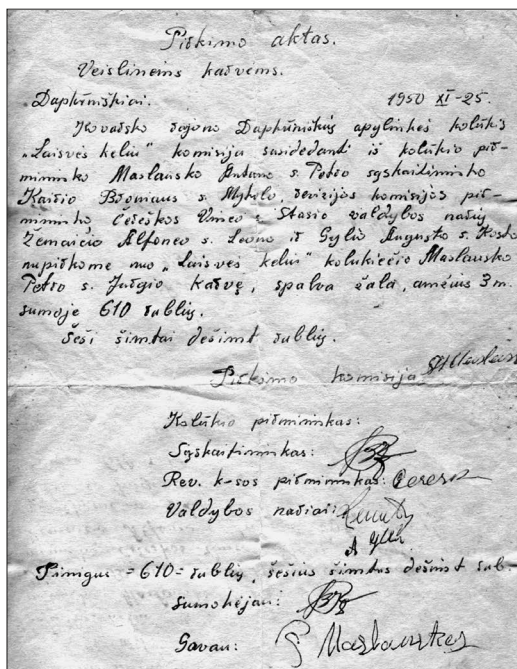 Pirkimo aktas.
Veislinėms karvėms.
Daptūniškiai. 1950 XI-25.
Kovarsko rajono Daptūniškių apylinkės kolūkio
„Laisvės keliu" komisija susidedanti iš kolūkio pir-
mininko Maslausko Antano s. Petro sąskaitininko
Kairio Broniaus s. Mykolo, revizijos komisijos pir-
mininko Čerėškos Vinco s. Stasio valdybos narių
Žemaičio Alfonso s. Leono ir Gylio Augusto s. Kosto
nupirkome nuo „Laisvės keliu" kolūkiečio Maslausko
Petro s. Jurgio karvę, spalva žala, amžius 3 m.
sumoje 610 rublių.
Šeši šimtai dešimt rublių.
Pirkimo komisija
Kolūkio pirmininkas:
Sąskaitininkas:
Rev. k-sos pirmininkas:
Valdybos nariai:
Pinigus =610= rublių, šešius šimtus dešimt rub.
sumokėjau:
Gavau: P Maslauskas